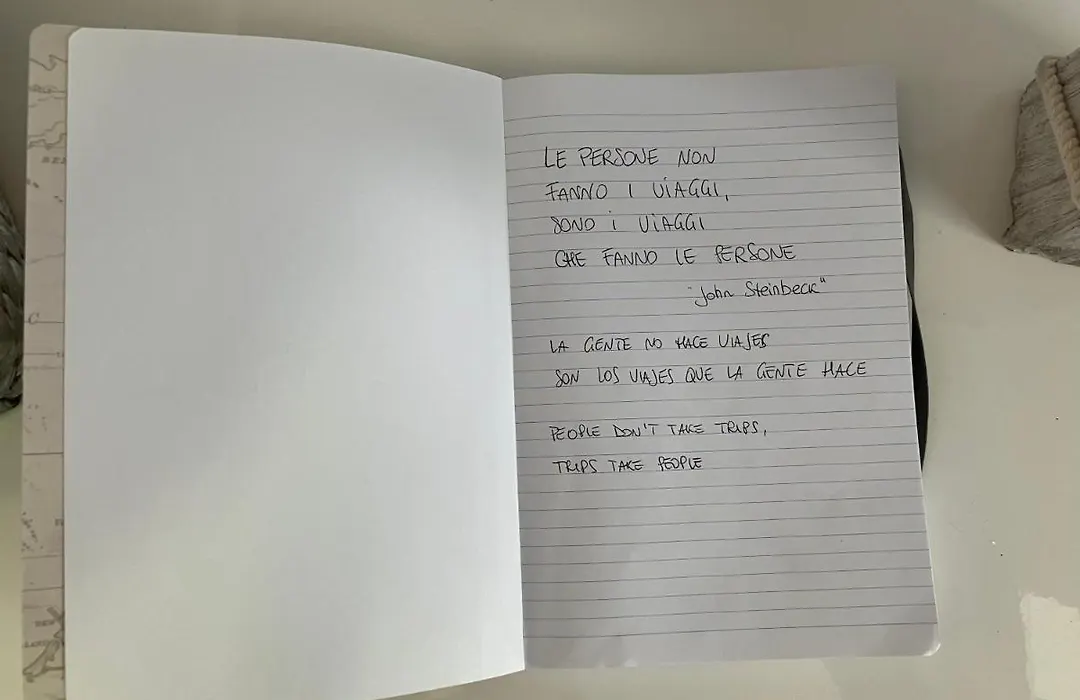 LE PERSONE NON
FANNO I VIAGGI,
SONO i VIAGGI
CHE FANNO LE PERSONE
"John Steinbeck"
LA GENTE NO HACE VIAJES
SON LOS VIAJES QUE LA GENTE HACE
PEOPLE DON'T TAKE TRIPS,
TRIPS TAKE PEOPLE